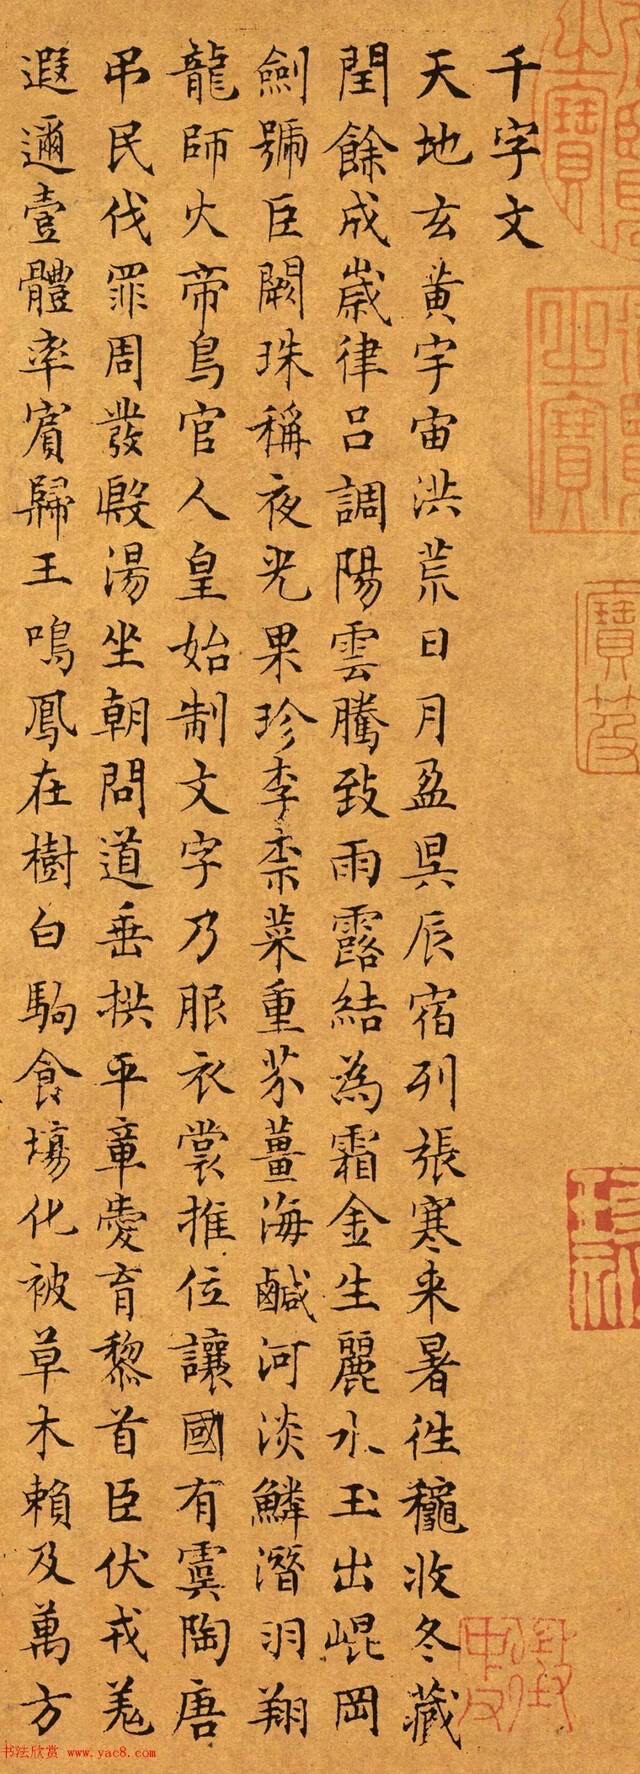 千字文
天地玄黄宇宙洪荒日月盈昃辰宿列張寒来暑徃穐收冬藏
閏餘成歲律呂調陽雲騰致雨露結為霜金生麗水玉出崐岡
劍號巨闕珠稱夜光果珍李柰菜重芥薑海鹹河淡鱗潛羽翔
龍師火帝鳥官人皇始制文字乃服衣裳推位讓國有虞陶唐
吊民伐罪周發殷湯坐朝問道垂拱平章愛育黎首臣伏戎羌
遐邇壹體率賓歸王鳴鳳在樹白駒食場化被草木賴及萬方
书法欣赏 www.yac8.com